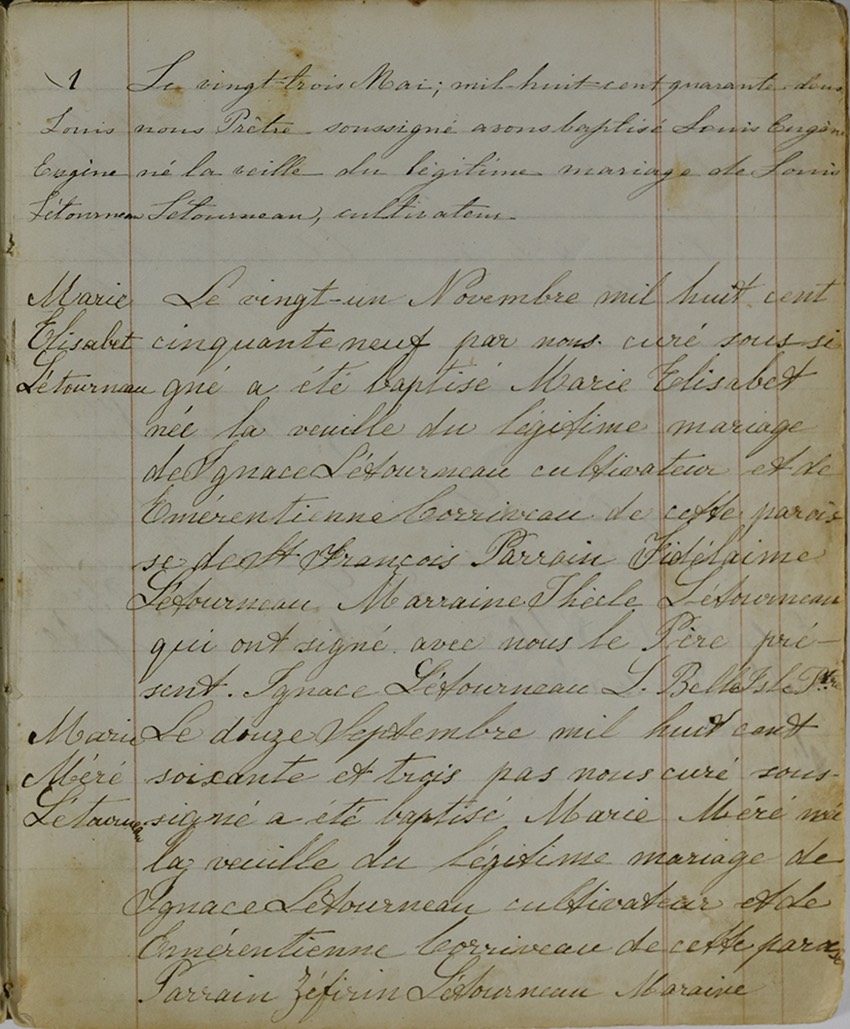 1 Le vingt-trois Mai; mil-huit-cent quarante-deux,
Louis nous Prêtre soussigné avons baptisé Louis Eugène
Eugène né la veille du légitime mariage de Louis
Létourneau Létourneau, cultivateur
Marie Le vingt-un Novembre mil huit cent
Elisabet cinquante neuf par nous curé sous-si
Létourneau gné a été baptisé Marie Elisabet
née la veuille du légitime mariage
de Ignace Létourneau cultivateur et de
Emérentienne Corriveau de cette parois
se de St François Parrain Fidélaime
Létourneau Marraine Thècle Létourneau
qui ont signé avec nous le Père pré-
sent. Ignace Létourneau L. Belle Isle Ptre
Marie Le douze Septembre mil huit cent
Méré soixante et trois pas nous curé sous-
Létourneau signé a été baptisé Marie Méré née
la veuille du légitime mariage de
Ignace Létourneau cultivateur et de
Emérentienne Corriveau de cette paroisse
Parrain Zéfirin Létourneau Maraine